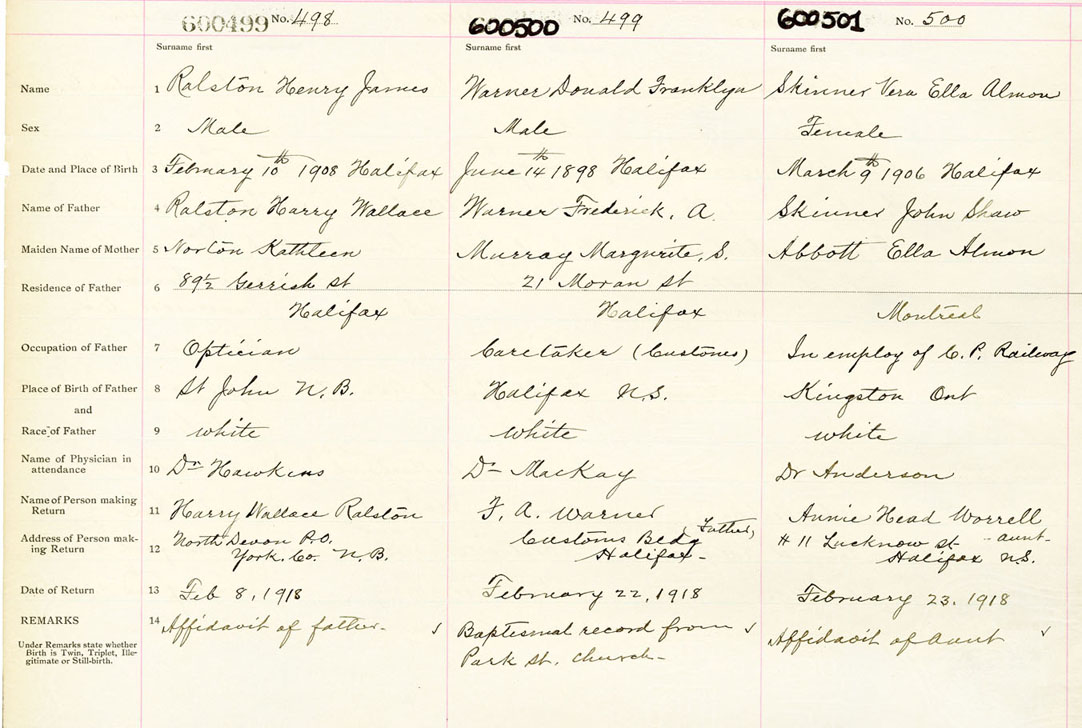 600499 No. 498 600500 No. 499 600501 No. 500
Surname first Surname first Surname first
Name 1 Ralston Henry James Warner Donald Franklyn Skinner Vera Ella Almon
Sex 2 Male Male Female
Date and Place of Birth 3 February 10th 1908 Halifax June 14th 1898 Halifax March 9th 1906 Halifax
Name of Father 4 Ralston Harry Wallace Warner Frederick, A. Skinner John Shaw
Maiden Name of Mother 5 Norton Kathleen Murray Margurite, S. Abbott Ella Almon
Residence of Father 6 89½ Gerrish St 21 Moran St
Halifax Halifax Montreal
Occupation of Father 7 Optician Caretaker (Customes) In employ of C. P. Railway
Place of Birth of Father 8 St John N. B. Halifax N.S. Kingston Ont
and
Race of Father 9 white white white
Name of Physician in
attendance 10 Dr Hawkins Dr MacKay Dr Anderson
Name of Person making
Return 11 Harry Wallace Ralston F. A. Warner Annie Head Worrell
Address of Person mak-
ing Return 12 North Devon P.O. Customs Bldg (Father) # 11 Lucknow St - aunt-
York. Co. N.B. Halifax- Halifax N.S.
Date of Return 13 Feb 8, 1918 February 22, 1918 February 23. 1918
REMARKS 14 Affidavit of father- Baptismal record from Affidavit of Aunt
Under Remarks state whether
Birth is Twin, Triplet, Ille-
gitimate or Still-birth. Park St. Church-